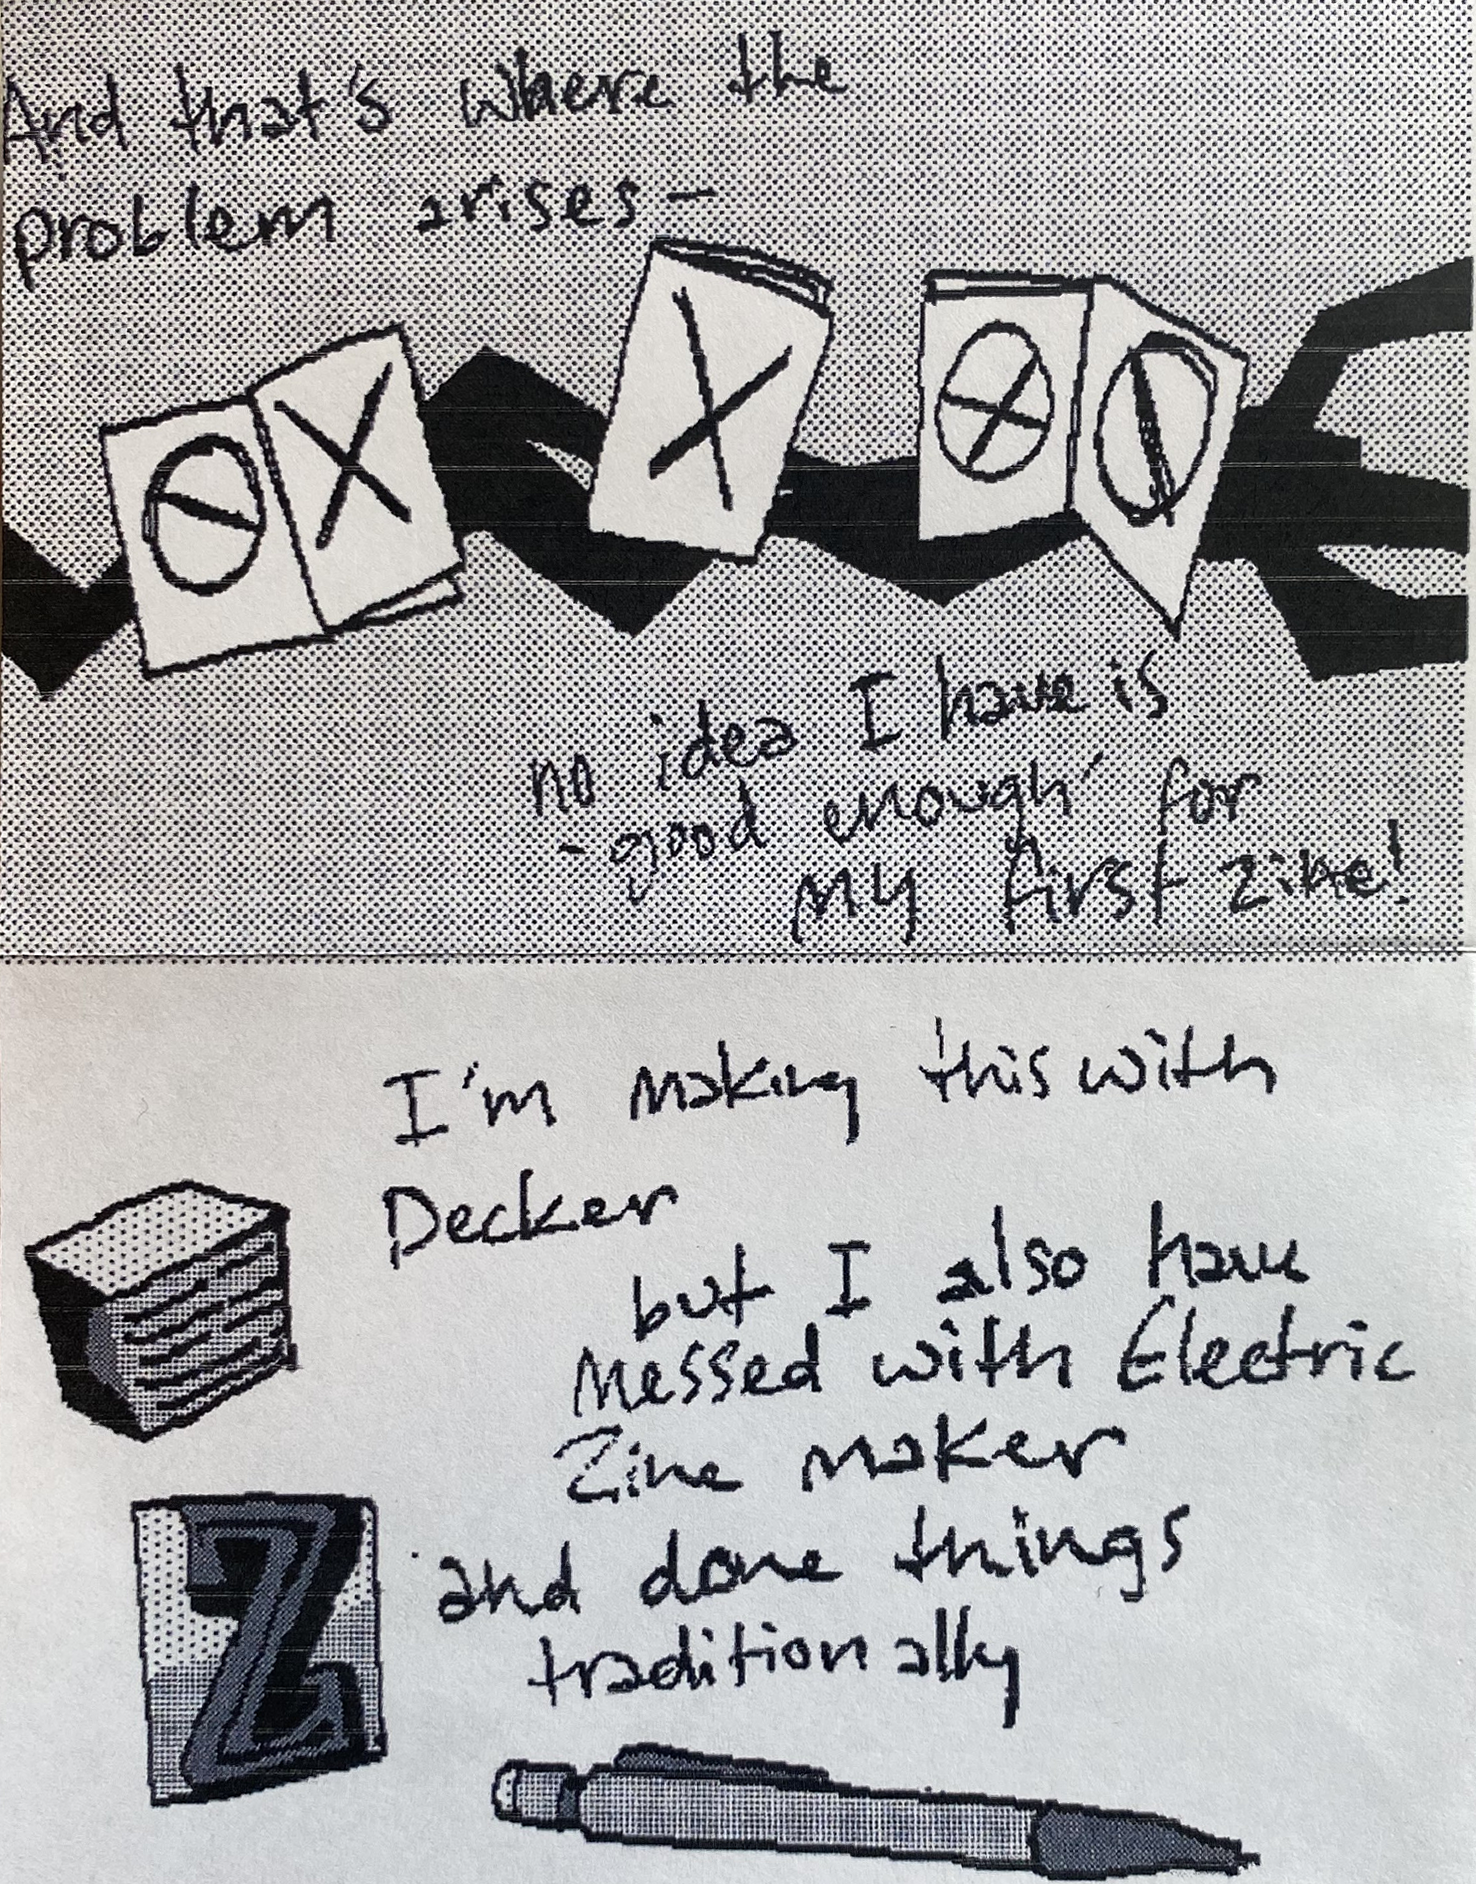 And that's where the
problem arises—
no idea I have is
'good enough' for
my first zine!
I'm making this with
Decker
but I also have
messed with Electric
Zine maker
and done things
traditionally
Z